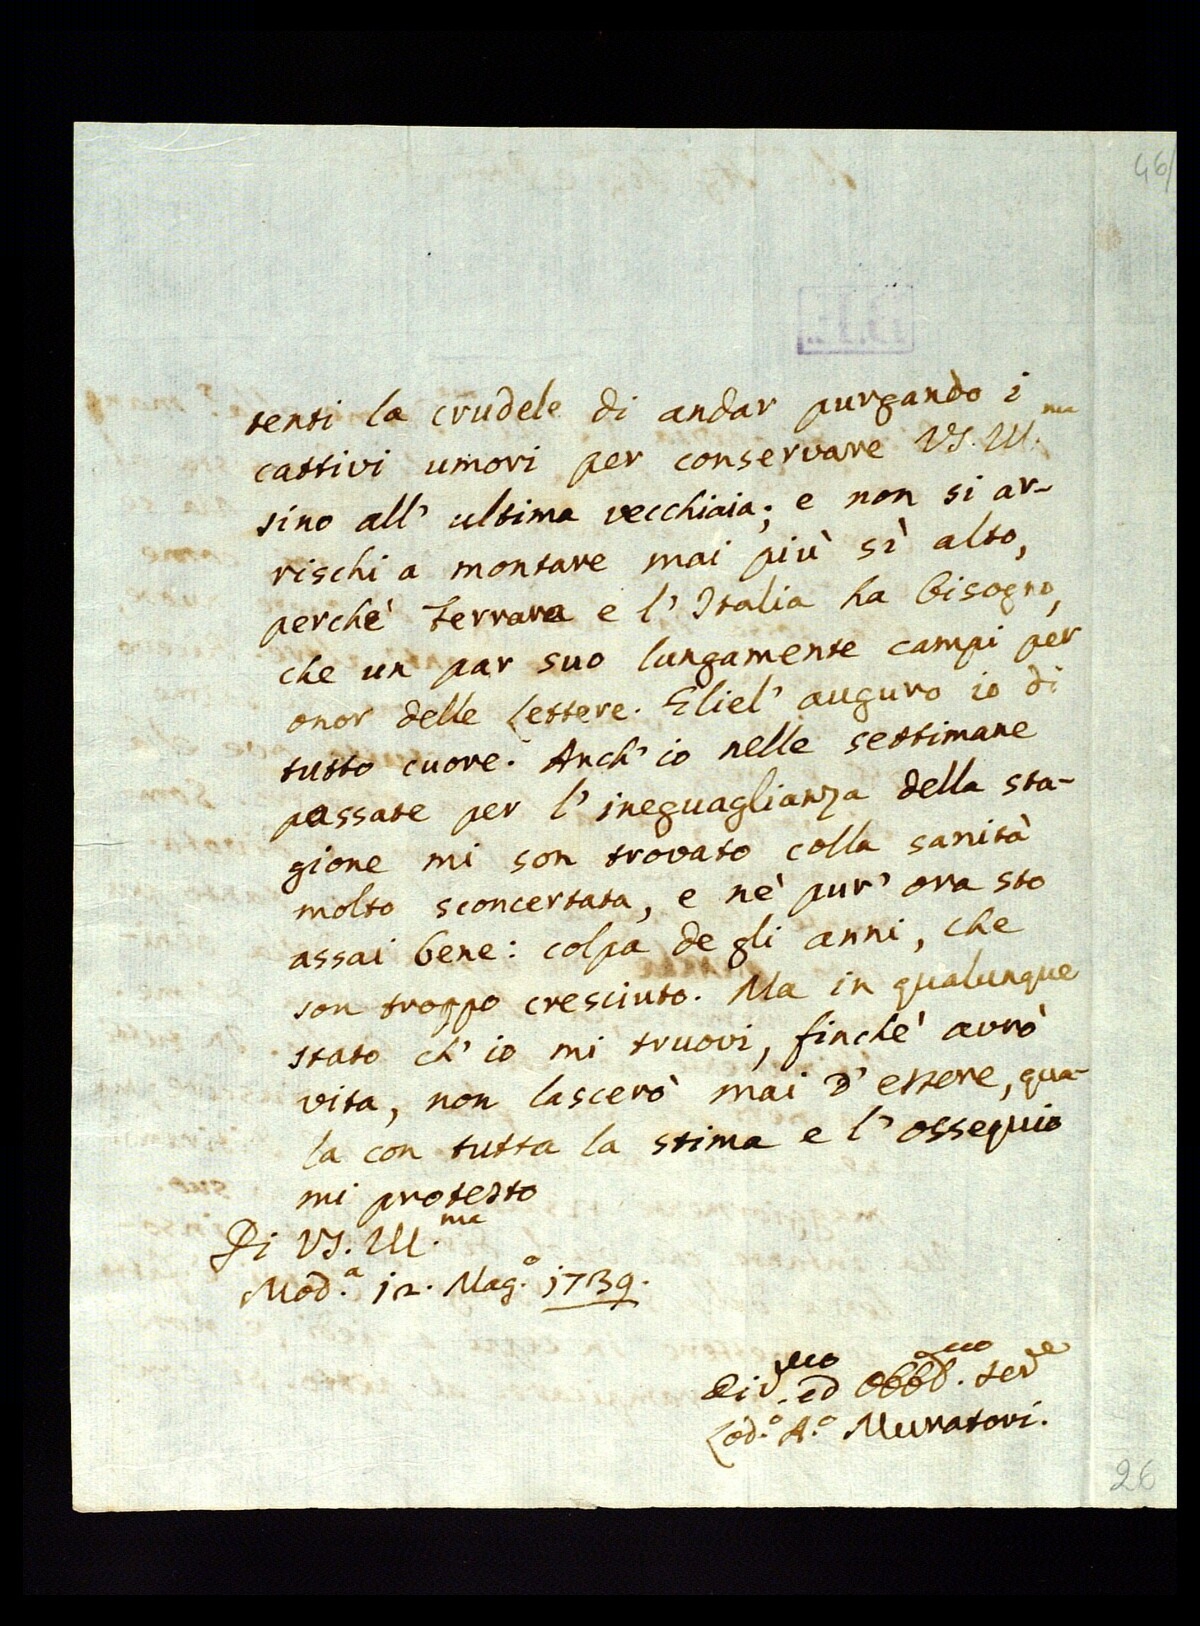 46/
tenti la crudele di andar purgando i
cattivi umori per conservare VS. Ill.ma
sino all' ultima vecchiaia; e non si ar-
rischi a montare mai più sì alto,
perchè Ferrara e l' Italia ha bisogno,
che un par suo lungamente campi per
onor delle Lettere. Eliel' auguro io di
tutto cuore. Anch' io nelle settimane
passate per l' ineguaglianza della sta-
gione mi son trovato colla sanità
molto sconcertata, e nè pur' ora sto
assai bene: colpa degli anni, che
son troppo cresciuto. Ma in qualunque
stato ch' io mi truovi, finchè avrò
vita, non lascerò mai d' essere, qua-
la con tutta la stima e l' ossequio
mi protesto
Di VS. Ill.ma
Mod.a 12. Mag.o 1739.
Div.mo ed Obbl.mo Ser.e
Lod.o A.o Muratori.
26